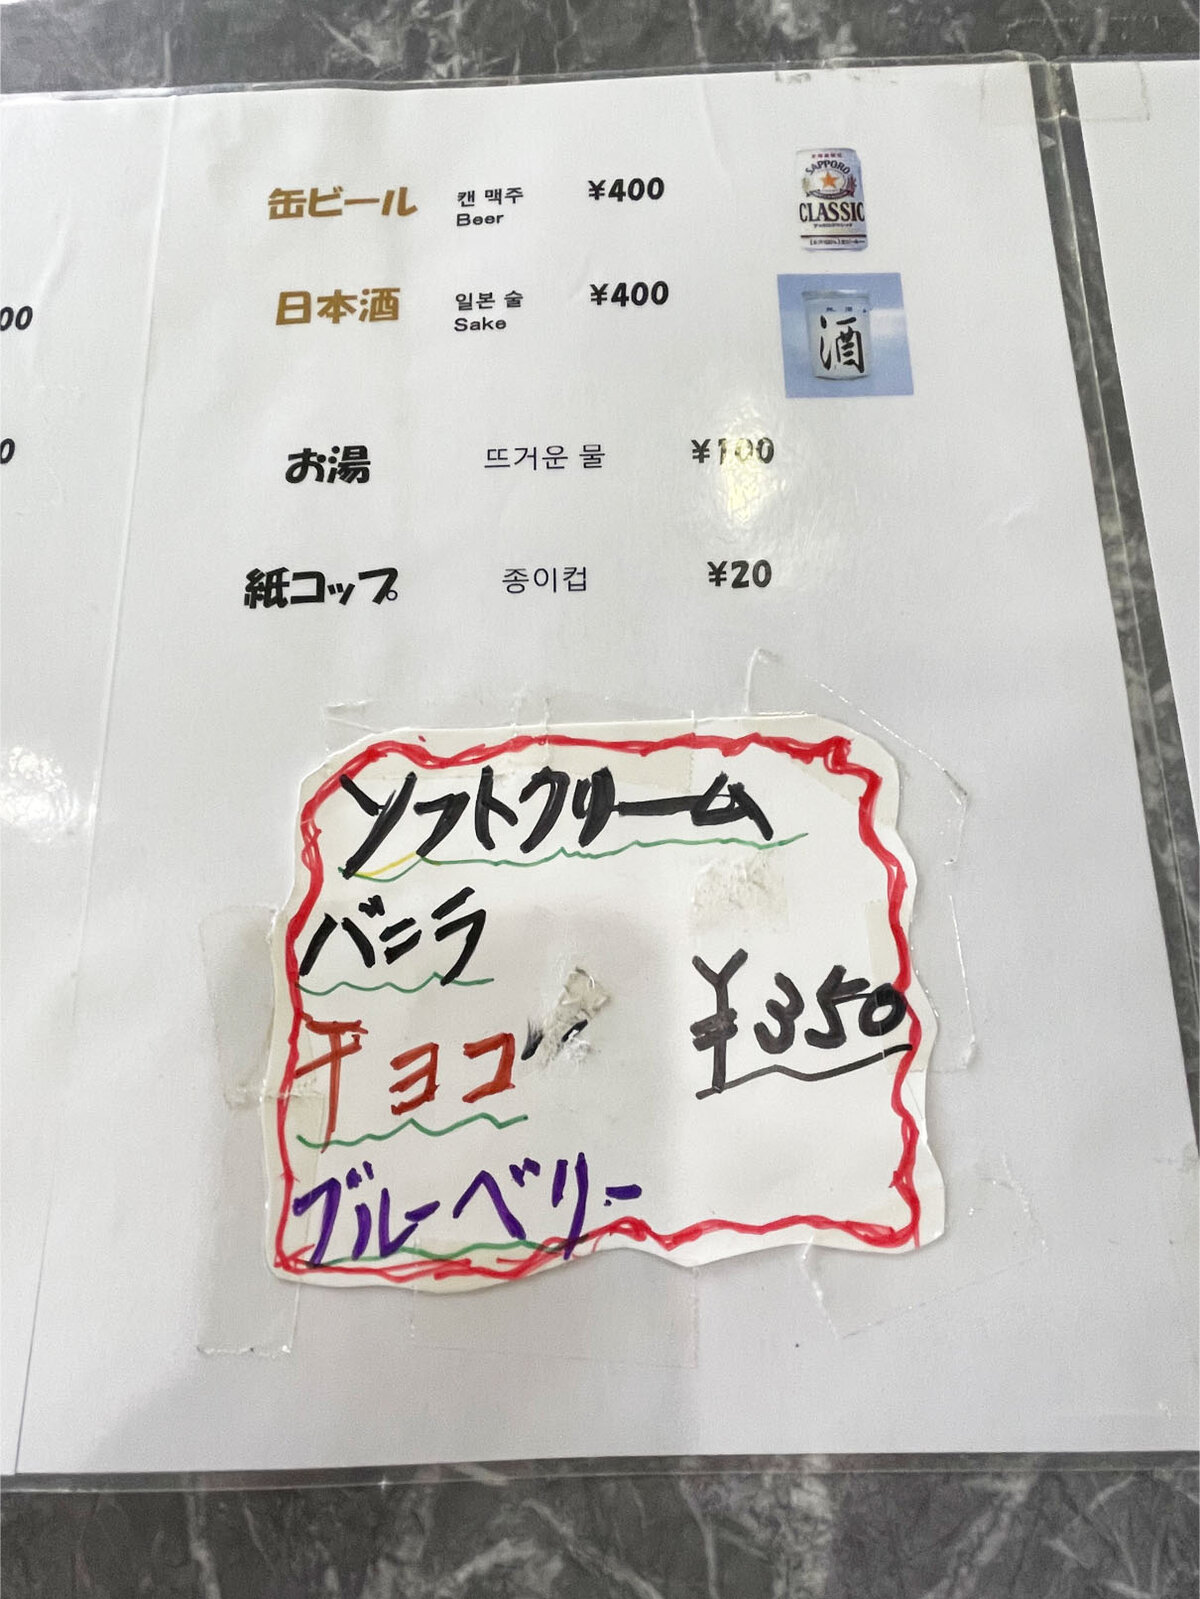 缶ビール 캔 맥주 ¥400
Beer
SAPPORO
CLASSIC
日本酒 일본 술 ¥400
Sake
酒
00
お湯 뜨거운 물 ¥100
0
紙コップ 종이컵 ¥20
ソフトクリーム
バニラ
チョコ ¥350
ブルーベリー